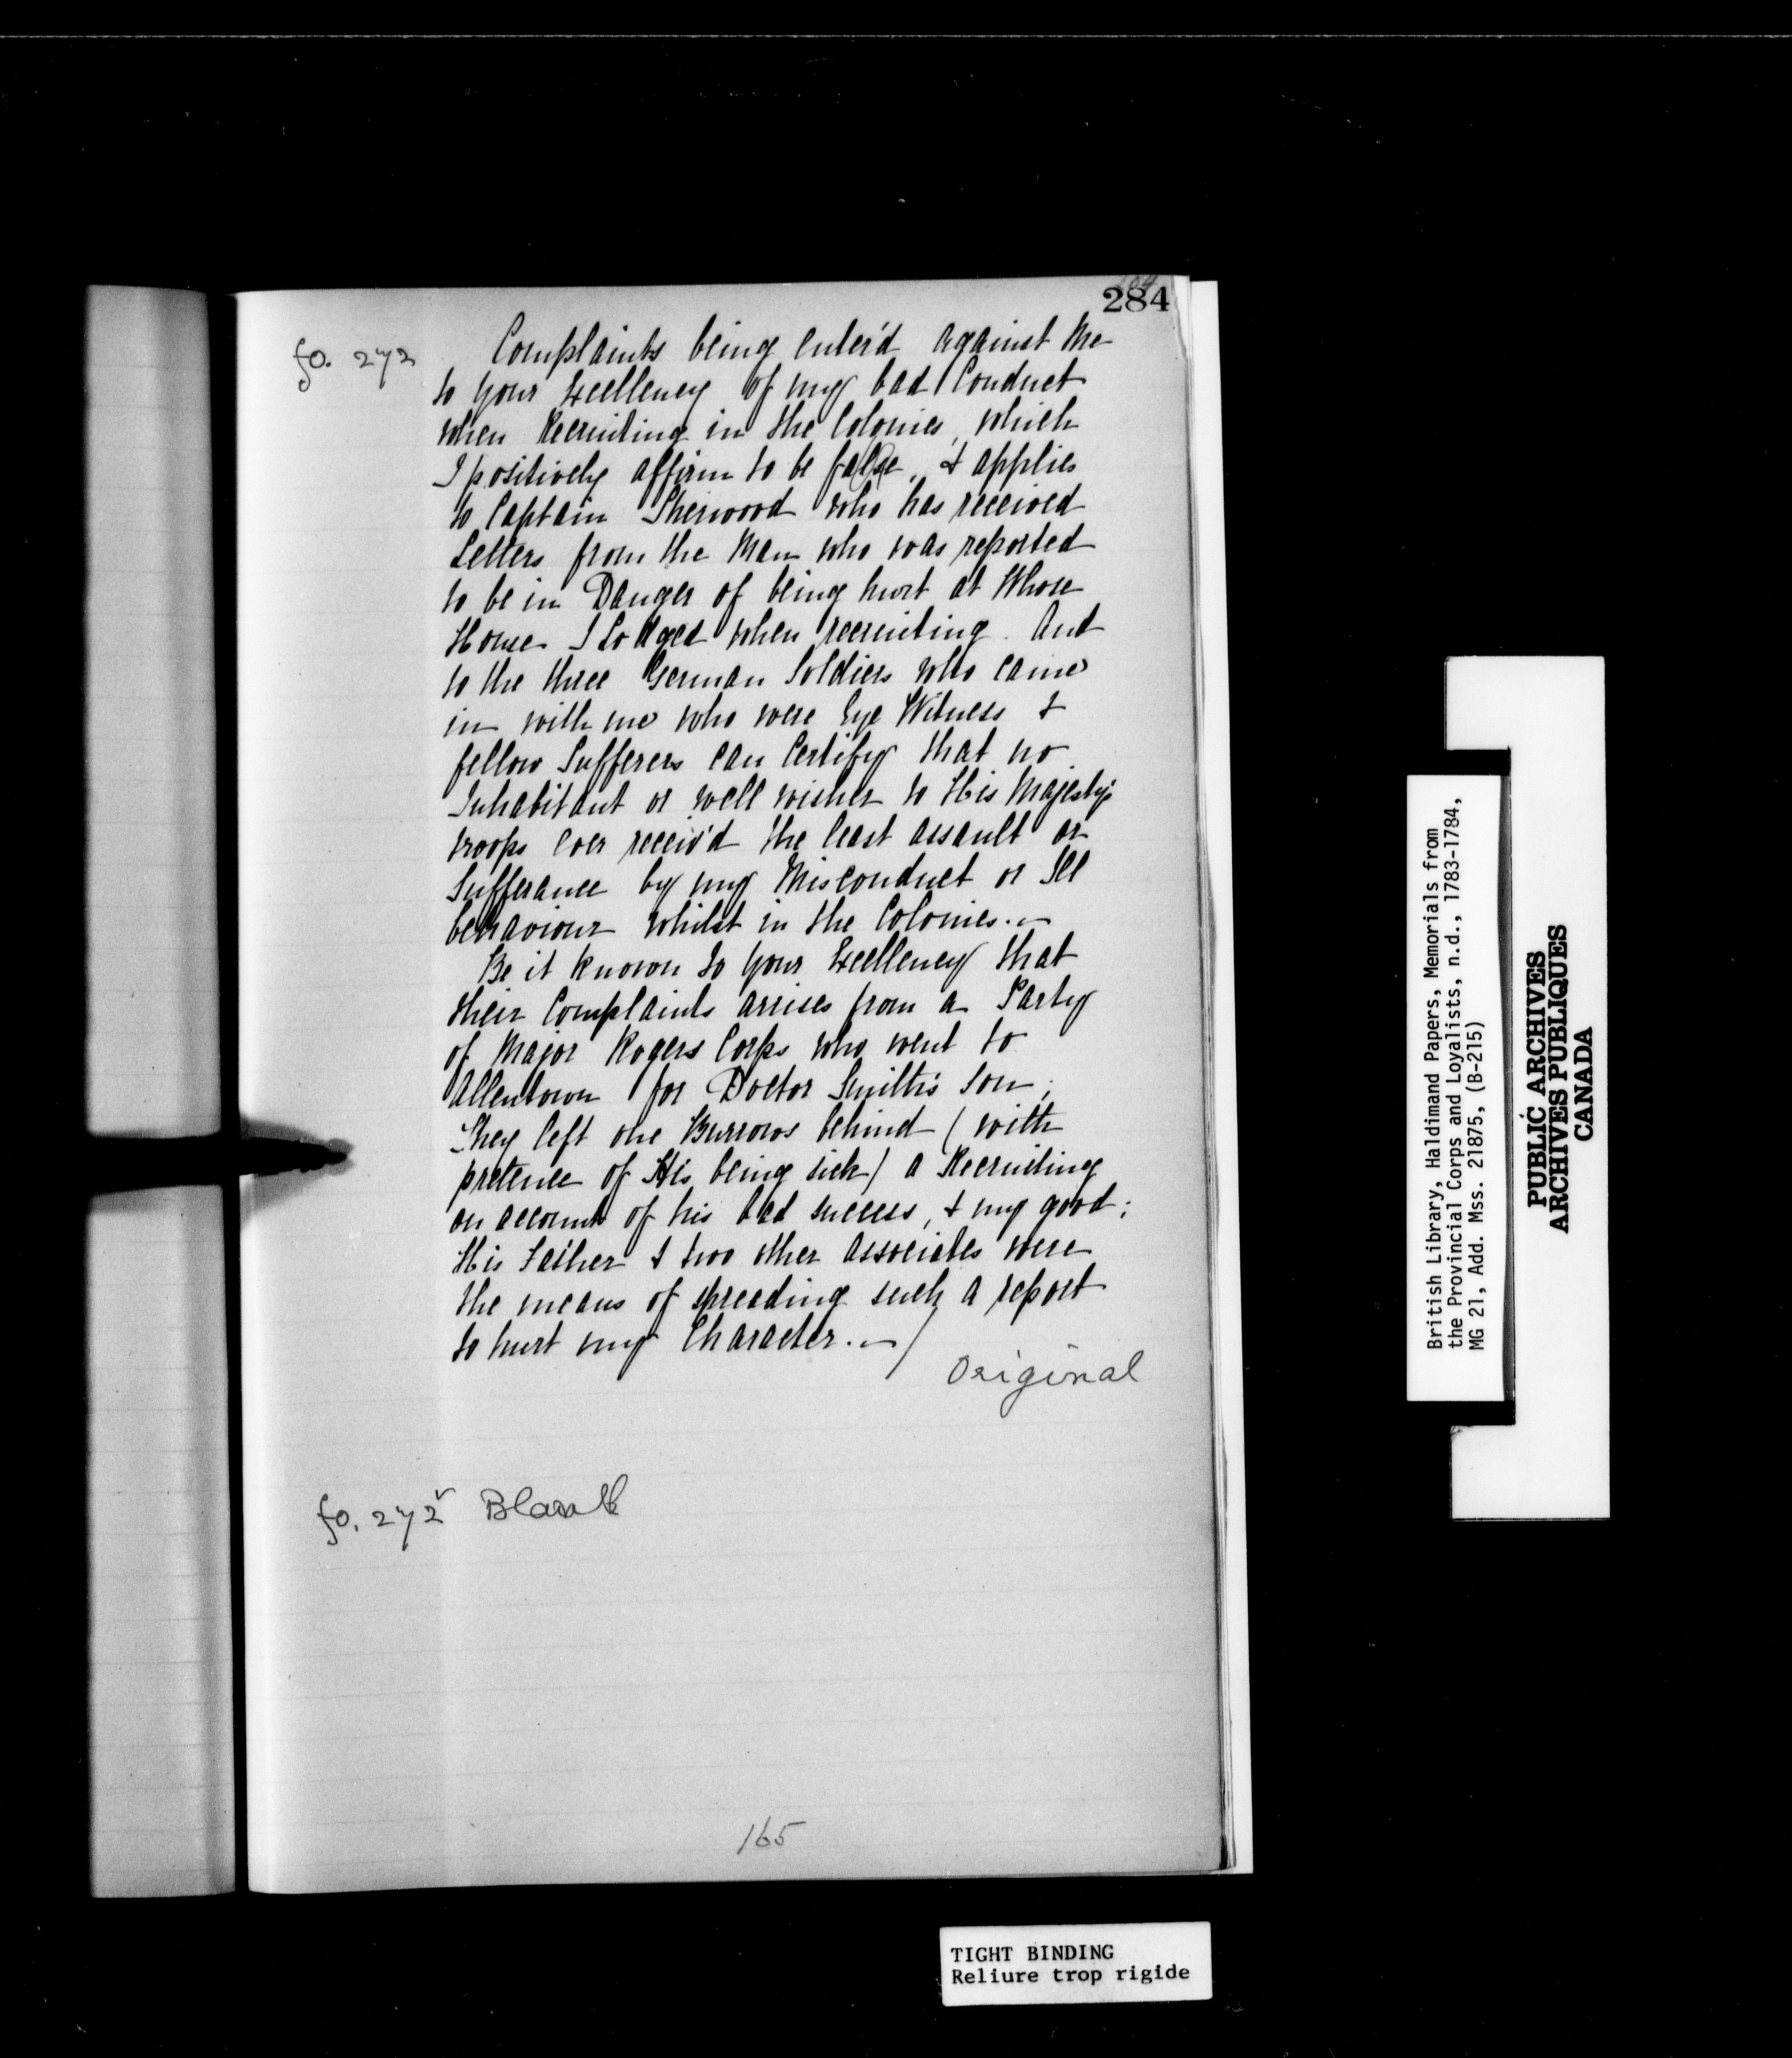 284
fo. 272
Complaints being enter'd against Me
to Your Excellency of my bad Conduct
when Recruiting in the Colonies, which
I positively affirm to be false, & applies
to Captain Sherwood who has received
Letters from the Man who was reported
to be in Danger of being hurt at Whose
House I Lodged when recruiting. And
to the three German Soldiers who came
in with me who were Eye Witness &
fellow Sufferers can Certify that no
Inhabitant or well wisher to His Majesty's
troops ever receiv'd the least assault or
Sufferance by my Misconduct or Ill
behaviour whilst in the Colonies.
Be it known to Your Excellency that
their Complaints arrises from a Party
of Major Rogers Corps who went to
Allentown for Doctor Smith's Son;
They left one Burrows behind (with
pretence of His being sick) a Recruiting
on account of his bad success, & my good;
His Father & two other Associates were
the means of spreading such a report
to hurt my Character.
Original
fo. 272v Blank
165
British Library, Haldimand Papers, Memorials from
the Provincial Corps and Loyalists, n.d., 1783-1784,
MG 21, Add. Mss. 21875, (B-215)
PUBLIC ARCHIVES
ARCHIVES PUBLIQUES
CANADA
TIGHT BINDING
Reliure trop rigide